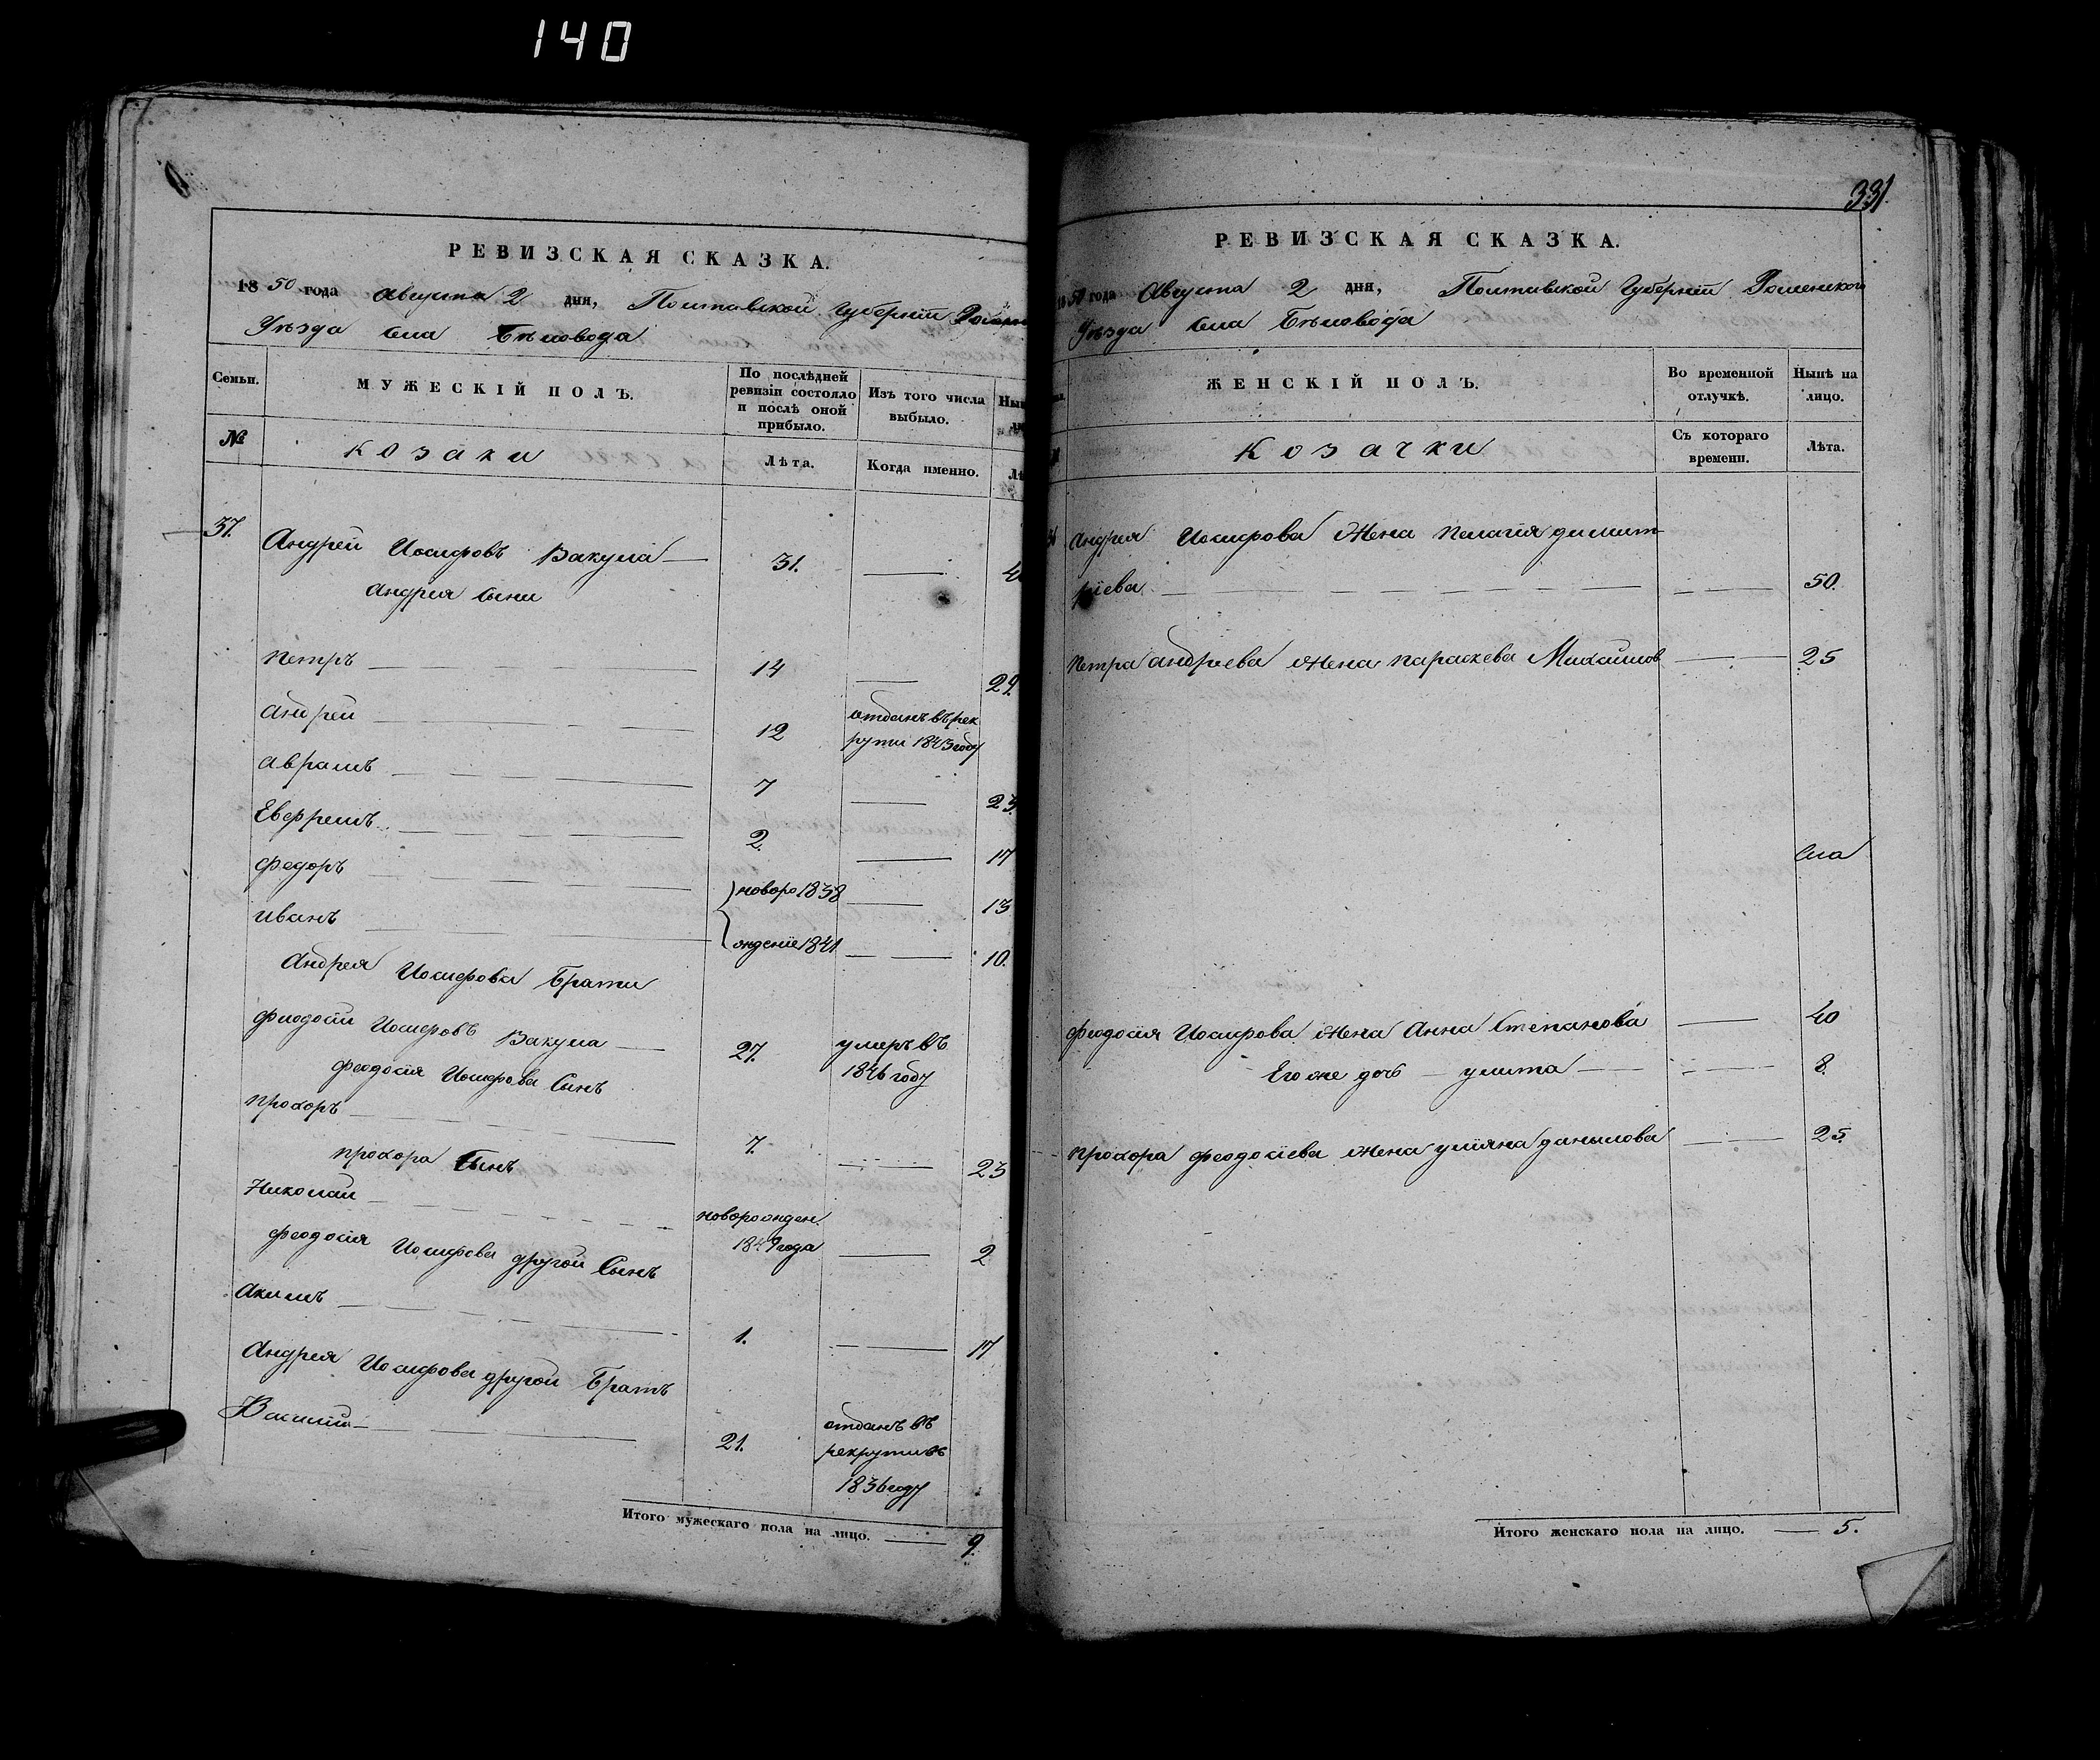 140
РЕВИЗСКАЯ СКАЗКА.
1850 года Августа 2 дня, Полтавской Губерніи
Уѣзда Села Бѣловода
Семьи.
МУЖЕСКІЙ ПОЛЪ.
По послѣдней ревизіи состояло и послѣ оной прибыло.
Изъ того числа выбыло.
№
Козаки
Лѣта.
Когда именно.
37. Андрей Иосифовъ Вакула — 31. —
Андрея Сыни
Петръ — 14 — 29.
Андрей — 12 отданъ въ рек
рути 1843 году
Аврамъ — 7 — 23
Евфремъ — 2. — 17
Федоръ — новоро 1838 — 13
Иванъ — жденіе 1841 — 10.
Андрея Иосифова Брати
Феодосій Иосифовъ Вакула — 27. умеръ въ
1846 году
Феодосія Иосифова Сынъ
Прохоръ — 7. — 23
Прохора Сынъ
Николай — новорожден.
1849 года — 2
Феодосія Иосифова другой Сынъ
Акимъ — 1. — 17
Андрея Иосифова другой Братъ
Василій — 21. отданъ въ
рекрути въ
1836 году
Итого мужескаго пола на лицо. — 9.
331
РЕВИЗСКАЯ СКАЗКА.
1850 года Августа 2 дня, Полтавской Губерніи Роменского
Уѣзда Села Бѣловода
ЖЕНСКІЙ ПОЛЪ.
Во временной отлучкѣ.
Нынѣ на лицо.
Козачки
Съ котораго времени.
Лѣта.
Андрея Иосифова жена Пелагія Димит-
ріева — — 50.
Петра Андреева жена Параскева Михаилов — 25
Феодосія Иосифова жена Анна Степанова — 40
Его же дочь — Улита — — 8.
Прохора Феодосіева жена Уліяна Данылова — 25.
Итого женскаго пола на лицо. — 5.